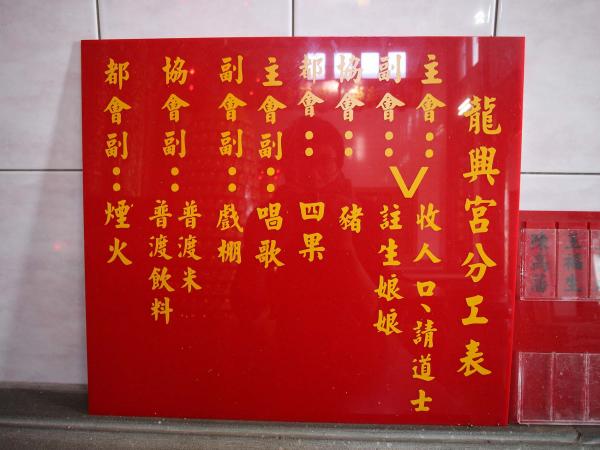 龍興宮分工表
主會：收人口、請道士
副會：註生娘娘
協會：豬
都會：四果
主會副：唱歌
副會副：戲棚
協會副：普渡米
普渡飲料
都會副：煙火